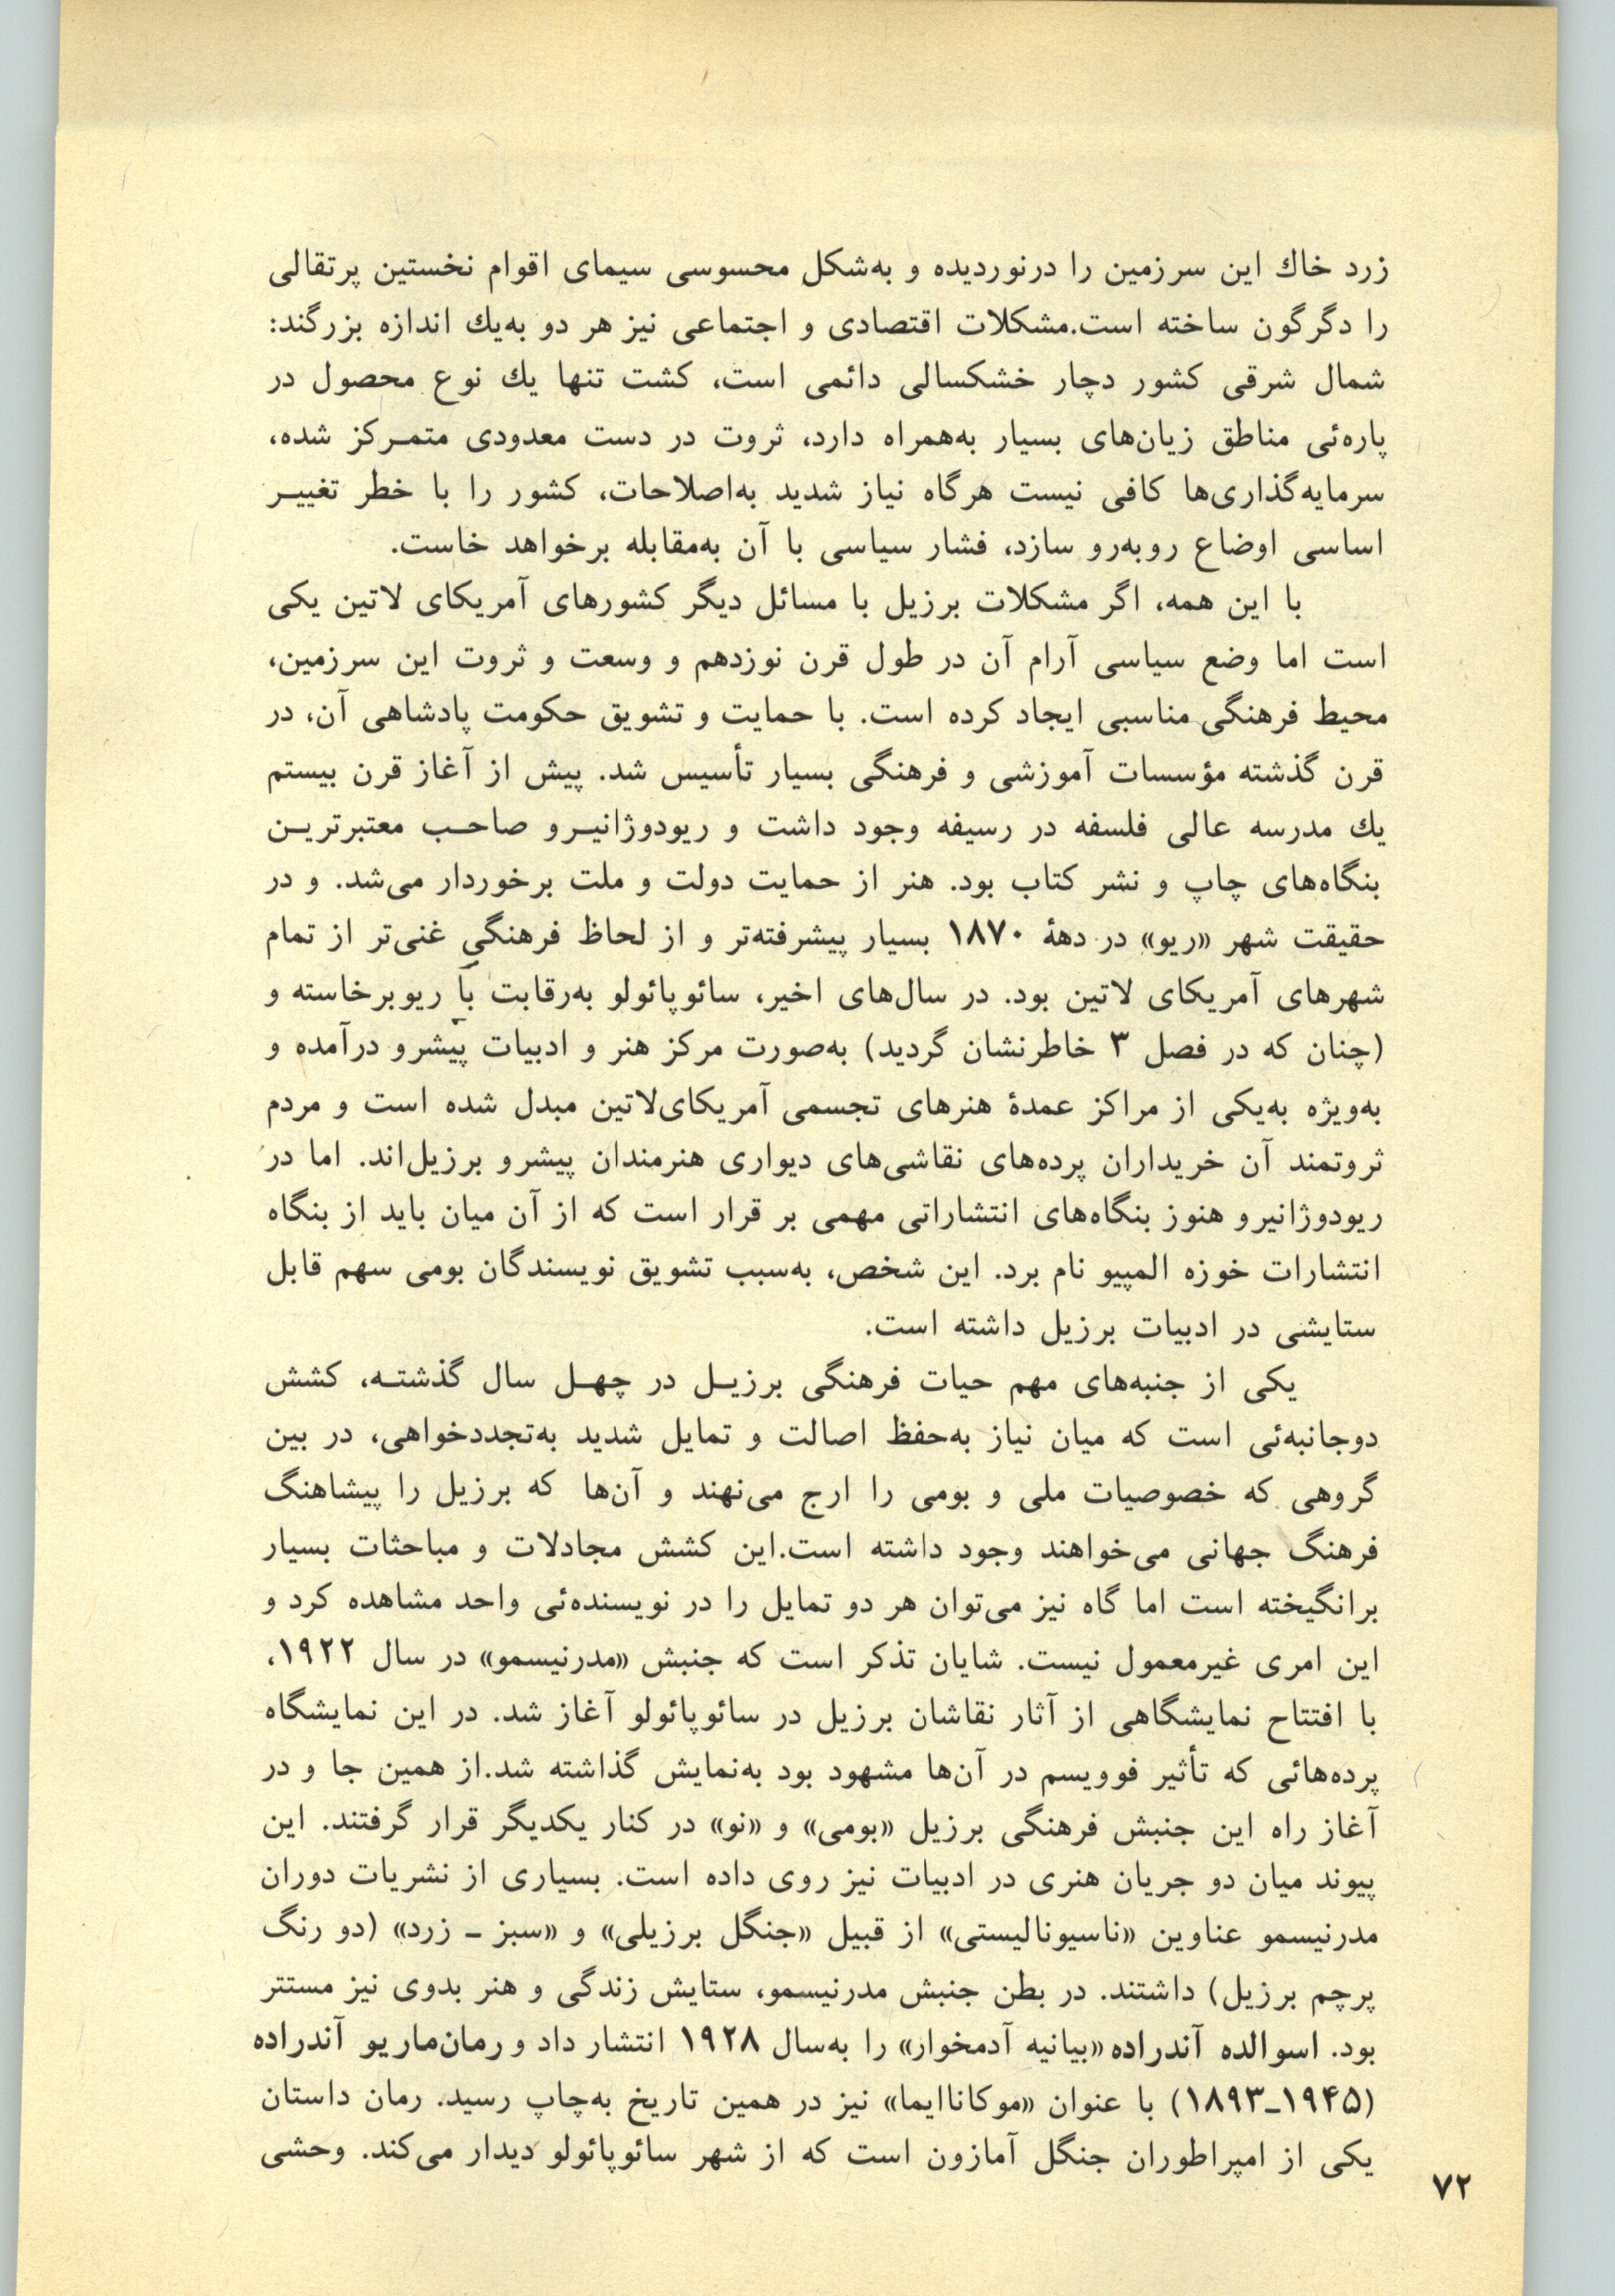 زرد خاك این سرزمین را درنوردیده و به‌شکل محسوسی سیمای اقوام نخستین پرتقالی
را دگرگون ساخته است.مشکلات اقتصادی و اجتماعی نیز هر دو به‌یك اندازه بزرگند:
شمال شرقی کشور دچار خشکسالی دائمی است، کشت تنها یك نوع محصول در
پاره‌ئی مناطق زیان‌های بسیار به‌همراه دارد، ثروت در دست معدودی متمـرکز شده،
سرمایه‌گذاری‌ها کافی نیست هرگاه نیاز شدید به‌اصلاحات، کشور را با خطر تغییـر
اساسی اوضاع روبه‌رو سازد، فشار سیاسی با آن به‌مقابله برخواهد خاست.
با این همه، اگر مشکلات برزیل با مسائل دیگر کشورهای آمریکای لاتین یکی
است اما وضع سیاسی آرام آن در طول قرن نوزدهم و وسعت و ثروت این سرزمین،
محیط فرهنگی مناسبی ایجاد کرده است. با حمایت و تشویق حکومت پادشاهی آن، در
قرن گذشته مؤسسات آموزشی و فرهنگی بسیار تأسیس شد. پیش از آغاز قرن بیستم
یك مدرسه عالی فلسفه در رسیفه وجود داشت و ریودوژانیـرو صاحـب معتبرتریـن
بنگاه‌های چاپ و نشر کتاب بود. هنر از حمایت دولت و ملت برخوردار می‌شد. و در
حقیقت شهر «ریو» در دههٔ ۱۸۷۰ بسیار پیشرفته‌تر و از لحاظ فرهنگي غنی‌تر از تمام
شهرهای آمریکای لاتین بود. در سال‌های اخیر، سائوپائولو به‌رقابت با ریوبرخاسته و
(چنان که در فصل ۳ خاطرنشان گردید) به‌صورت مرکز هنر و ادبیات پیشرو درآمده و
به‌ویژه به‌یکی از مراکز عمدهٔ هنرهای تجسمی آمریکای‌لاتین مبدل شده است و مردم
ثروتمند آن خریداران پرده‌های نقاشی‌های دیواری هنرمندان پیشرو برزیل‌اند. اما در
ریودوژانیرو هنوز بنگاه‌های انتشاراتی مهمی بر قرار است که از آن میان باید از بنگاه
انتشارات خوزه المپیو نام برد. این شخص، به‌سبب تشویق نویسندگان بومی سهم قابل
ستایشی در ادبیات برزیل داشته است.
یکی از جنبه‌های مهم حیات فرهنگی برزیـل در چهـل سال گذشتـه، کشش
دوجانبه‌ئی است که میان نیاز به‌حفظ اصالت و تمایل شدید به‌تجددخواهی، در بین
گروهی که خصوصیات ملی و بومی را ارج می‌نهند و آن‌ها که برزیل را پیشاهنگ
فرهنگ جهانی می‌خواهند وجود داشته است.این کشش مجادلات و مباحثات بسیار
برانگیخته است اما گاه نیز می‌توان هر دو تمایل را در نویسنده‌ئی واحد مشاهده کرد و
این امری غیرمعمول نیست. شایان تذکر است که جنبش «مدرنیسمو» در سال ۱۹۲۲،
با افتتاح نمایشگاهی از آثار نقاشان برزیل در سائوپائولو آغاز شد. در این نمایشگاه
پرده‌هائی که تأثیر فوویسم در آن‌ها مشهود بود به‌نمایش گذاشته شد.از همین جا و در
آغاز راه این جنبش فرهنگی برزیل «بومی» و «نو» در کنار یکدیگر قرار گرفتند. این
پیوند میان دو جریان هنری در ادبیات نیز روی داده است. بسیاری از نشریات دوران
مدرنیسمو عناوین «ناسیونالیستی» از قبیل «جنگل برزیلی» و «سبز ـ زرد» (دو رنگ
پرچم برزیل) داشتند. در بطن جنبش مدرنیسمو، ستایش زندگی و هنر بدوی نیز مستتر
بود. اسوالده آندراده «بیانیه آدمخوار» را به‌سال ۱۹۲۸ انتشار داد و رمان‌ماریو آندراده
(۱۹۴۵ـ۱۸۹۳) با عنوان «موکاناایما» نیز در همین تاریخ به‌چاپ رسید. رمان داستان
یکی از امپراطوران جنگل آمازون است که از شهر سائوپائولو دیدار می‌کند. وحشی
۷۲